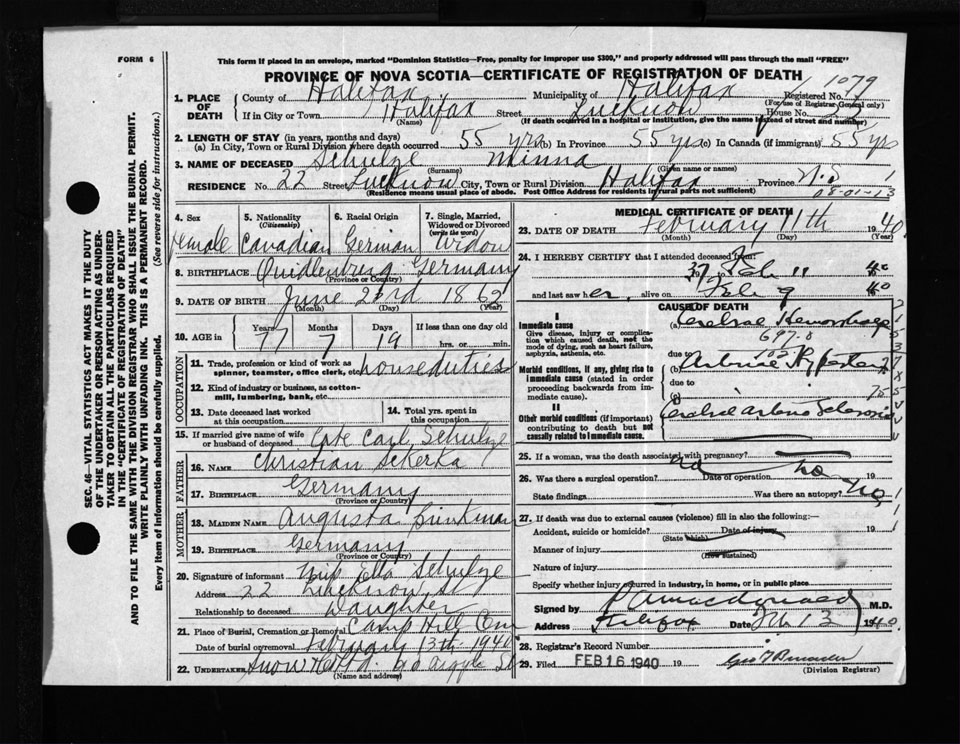 FORM 6
This form if placed in an envelope, marked "Dominion Statistics—Free, penalty for improper use $300," and properly addressed will pass through the mail "FREE"
PROVINCE OF NOVA SCOTIA—CERTIFICATE OF REGISTRATION OF DEATH
1079
1. PLACE OF DEATH
County of Halifax Municipality of Halifax Registered No.
(For use of Registrar General only)
If in City or Town Halifax Street Lucknow House No. 22
(Name) (If death occurred in a hospital or institution, give the name instead of street and number)
2. LENGTH OF STAY (in years, months and days)
(a) In City, Town or Rural Division where death occurred 55 yrs (b) In Province 55 yrs (c) In Canada (if immigrant) 55 yrs
3. NAME OF DECEASED Schulze Minna
(Surname) (Given name or names)
RESIDENCE No. 22 Street Lucknow City, Town or Rural Division Halifax Province N.S
(Residence means usual place of abode. Post Office Address for residents in rural parts not sufficient)
08-01-13
4. Sex
female
5. Nationality (Citizenship)
Canadian
6. Racial Origin
German
7. Single, Married, Widowed or Divorced (write the word)
Widow
8. BIRTHPLACE Quidlenburg Germany
(Province or Country)
9. DATE OF BIRTH June 23rd 1862
(Month) (Day) (Year)
10. AGE in Years Months Days If less than one day old
77 7 19 hrs. or min.
OCCUPATION
11. Trade, profession or kind of work as spinner, teamster, office clerk, etc. houseduties
12. Kind of industry or business, as cotton-mill, lumbering, bank, etc.
13. Date deceased last worked at this occupation
14. Total yrs. spent in this occupation
15. If married give name of wife or husband of deceased Late Carl Schulze
FATHER
16. NAME Christian Sckerka
17. BIRTHPLACE Germany
(Province or Country)
MOTHER
18. MAIDEN NAME Augusta Brinkman
19. BIRTHPLACE Germany
(Province or Country)
20. Signature of informant Miss Ella Schulze
Address 22 Lucknow St
Relationship to deceased Daughter
21. Place of Burial, Cremation or Removal Camp Hill Cem
Date of burial or removal February 13th 1940
22. UNDERTAKER Snow 90 Argyle St
(Name and address)
MEDICAL CERTIFICATE OF DEATH
23. DATE OF DEATH February 11th 1940
(Month) (Day) (Year)
24. I HEREBY CERTIFY that I attended deceased from:
Feb 11 40
and last saw her alive on Feb 9 1940
CAUSE OF DEATH
I
Immediate cause
Give disease, injury or complication which caused death, not the mode of dying, such as heart failure, asphyxia, asthenia, etc.
(a) Cerebral Hemorrhage
due to
Morbid conditions, if any, giving rise to immediate cause (stated in order proceeding backwards from immediate cause).
(b)
due to
II
Other morbid conditions (if important) contributing to death but not causally related to immediate cause.
Cerebral Arterio Sclerosis
25. If a woman, was the death associated with pregnancy?
26. Was there a surgical operation? no Date of operation 19
State findings Was there an autopsy? no
27. If death was due to external causes (violence) fill in also the following:—
Accident, suicide or homicide? Date of injury 19
(State which)
Manner of injury
(How sustained)
Nature of injury
Specify whether injury occurred in industry, in home, or in public place
Signed by M.D.
Address Halifax Date Feb 13 1940.
28. Registrar's Record Number
29. Filed FEB 16 1940 19
(Division Registrar)
SEC. 46—VITAL STATISTICS ACT MAKES IT THE DUTY OF THE UNDERTAKER OR PERSON ACTING AS UNDERTAKER TO OBTAIN ALL THE PARTICULARS REQUIRED IN THE "CERTIFICATE OF REGISTRATION OF DEATH" AND TO FILE THE SAME WITH THE DIVISION REGISTRAR WHO SHALL ISSUE THE BURIAL PERMIT.
WRITE PLAINLY WITH UNFADING INK. THIS IS A PERMANENT RECORD.
Every item of information should be carefully supplied. (See reverse side for instructions.)